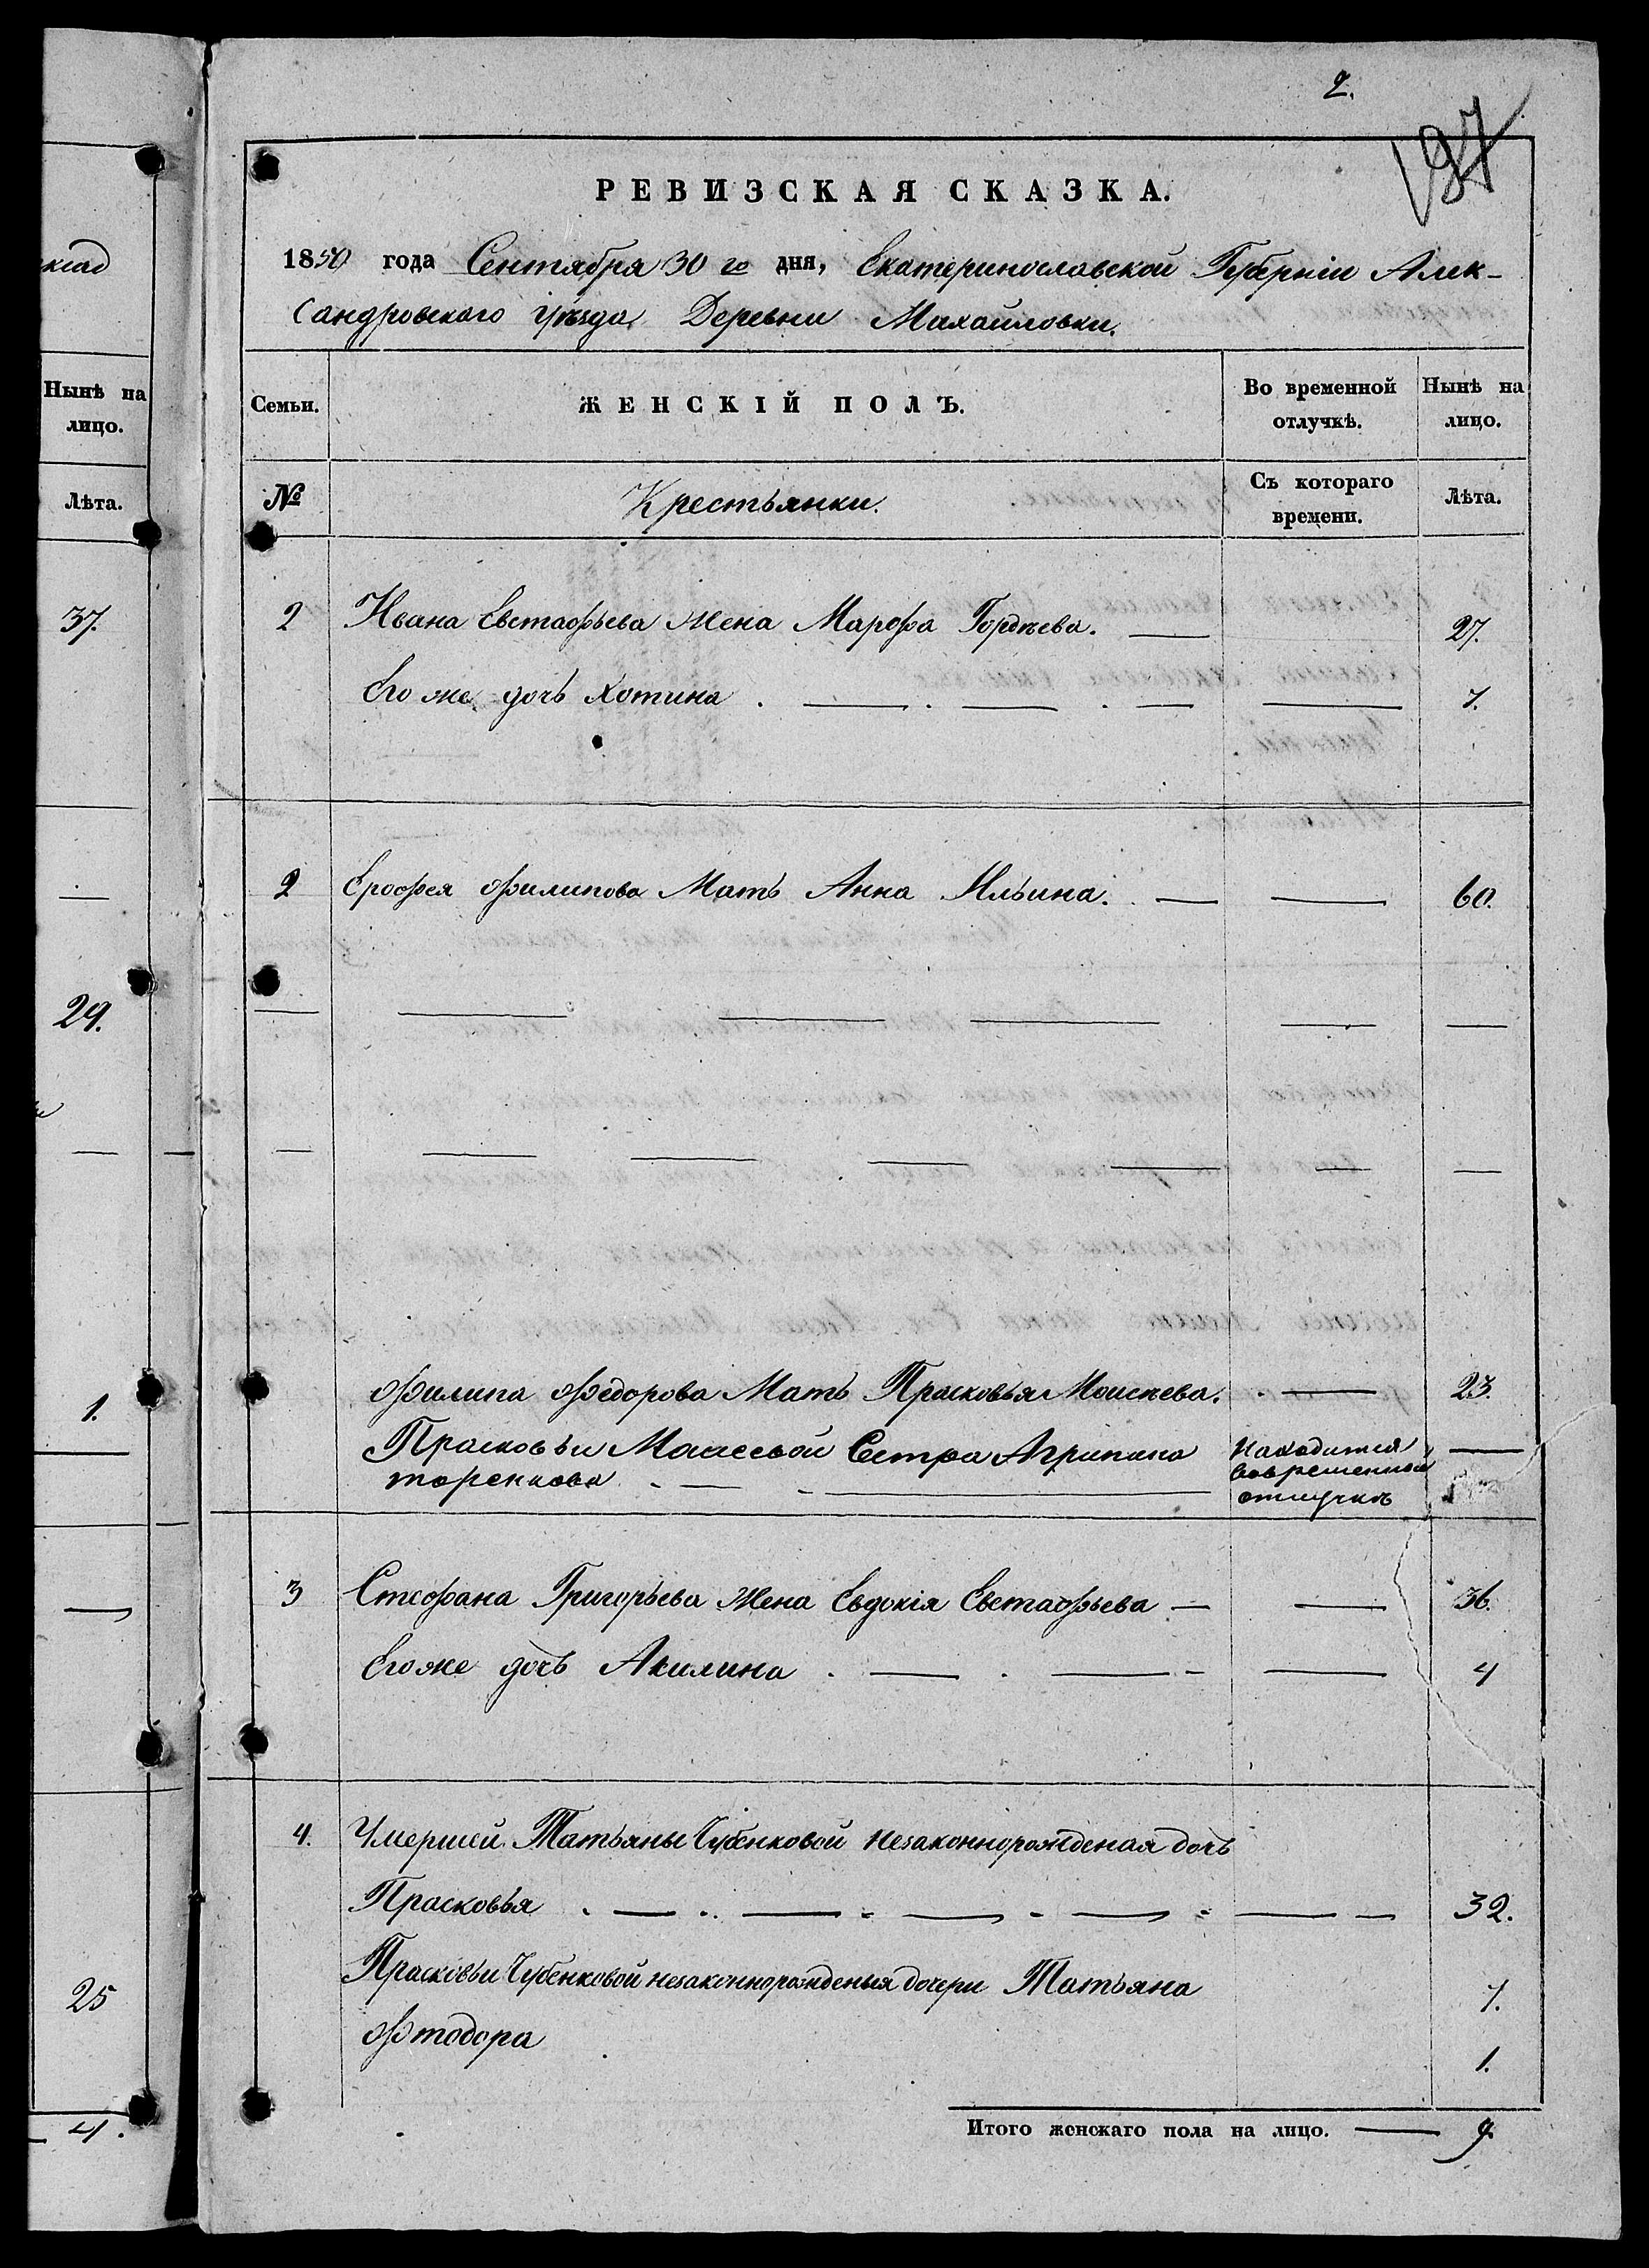 кіад
Нынѣ на
лицо.
Лѣта.
37.
29.
1.
25
4.
2.
197
РЕВИЗСКАЯ СКАЗКА.
1850 года Сентября 30 го дня, Екатеринославской Губерніи Алек-
сандровского уѣзда, Деревни Михайловки.
Семьи. ЖЕНСКІЙ ПОЛЪ. Во временной отлучкѣ. Нынѣ на лицо.
№ Крестьянки. Съ котораго времени. Лѣта.
2 Ивана Евстафьева жена Марфа Гордѣева. 27.
Его же дочь Хотина 7.
2 Ерофея Филипова Мать Анна Ильина. 60.
Филипа Федорова Мать Прасковья Моисѣева. 23.
Прасковьи Моисеевой Сестра Агрипина находится
вовременной
отлучкѣ
3 Стефана Григорьева жена Евдокія Евстафьева 36.
Егоже дочь Акилина 4
4. Умершей Татьяны Чубенковой незаконнорожденая дочь
Прасковья 32.
Прасковьи Чубенковой незаконнорожденыя дочери Татьяна 7.
Фтодора 1.
Итого женскаго пола на лицо. 9.